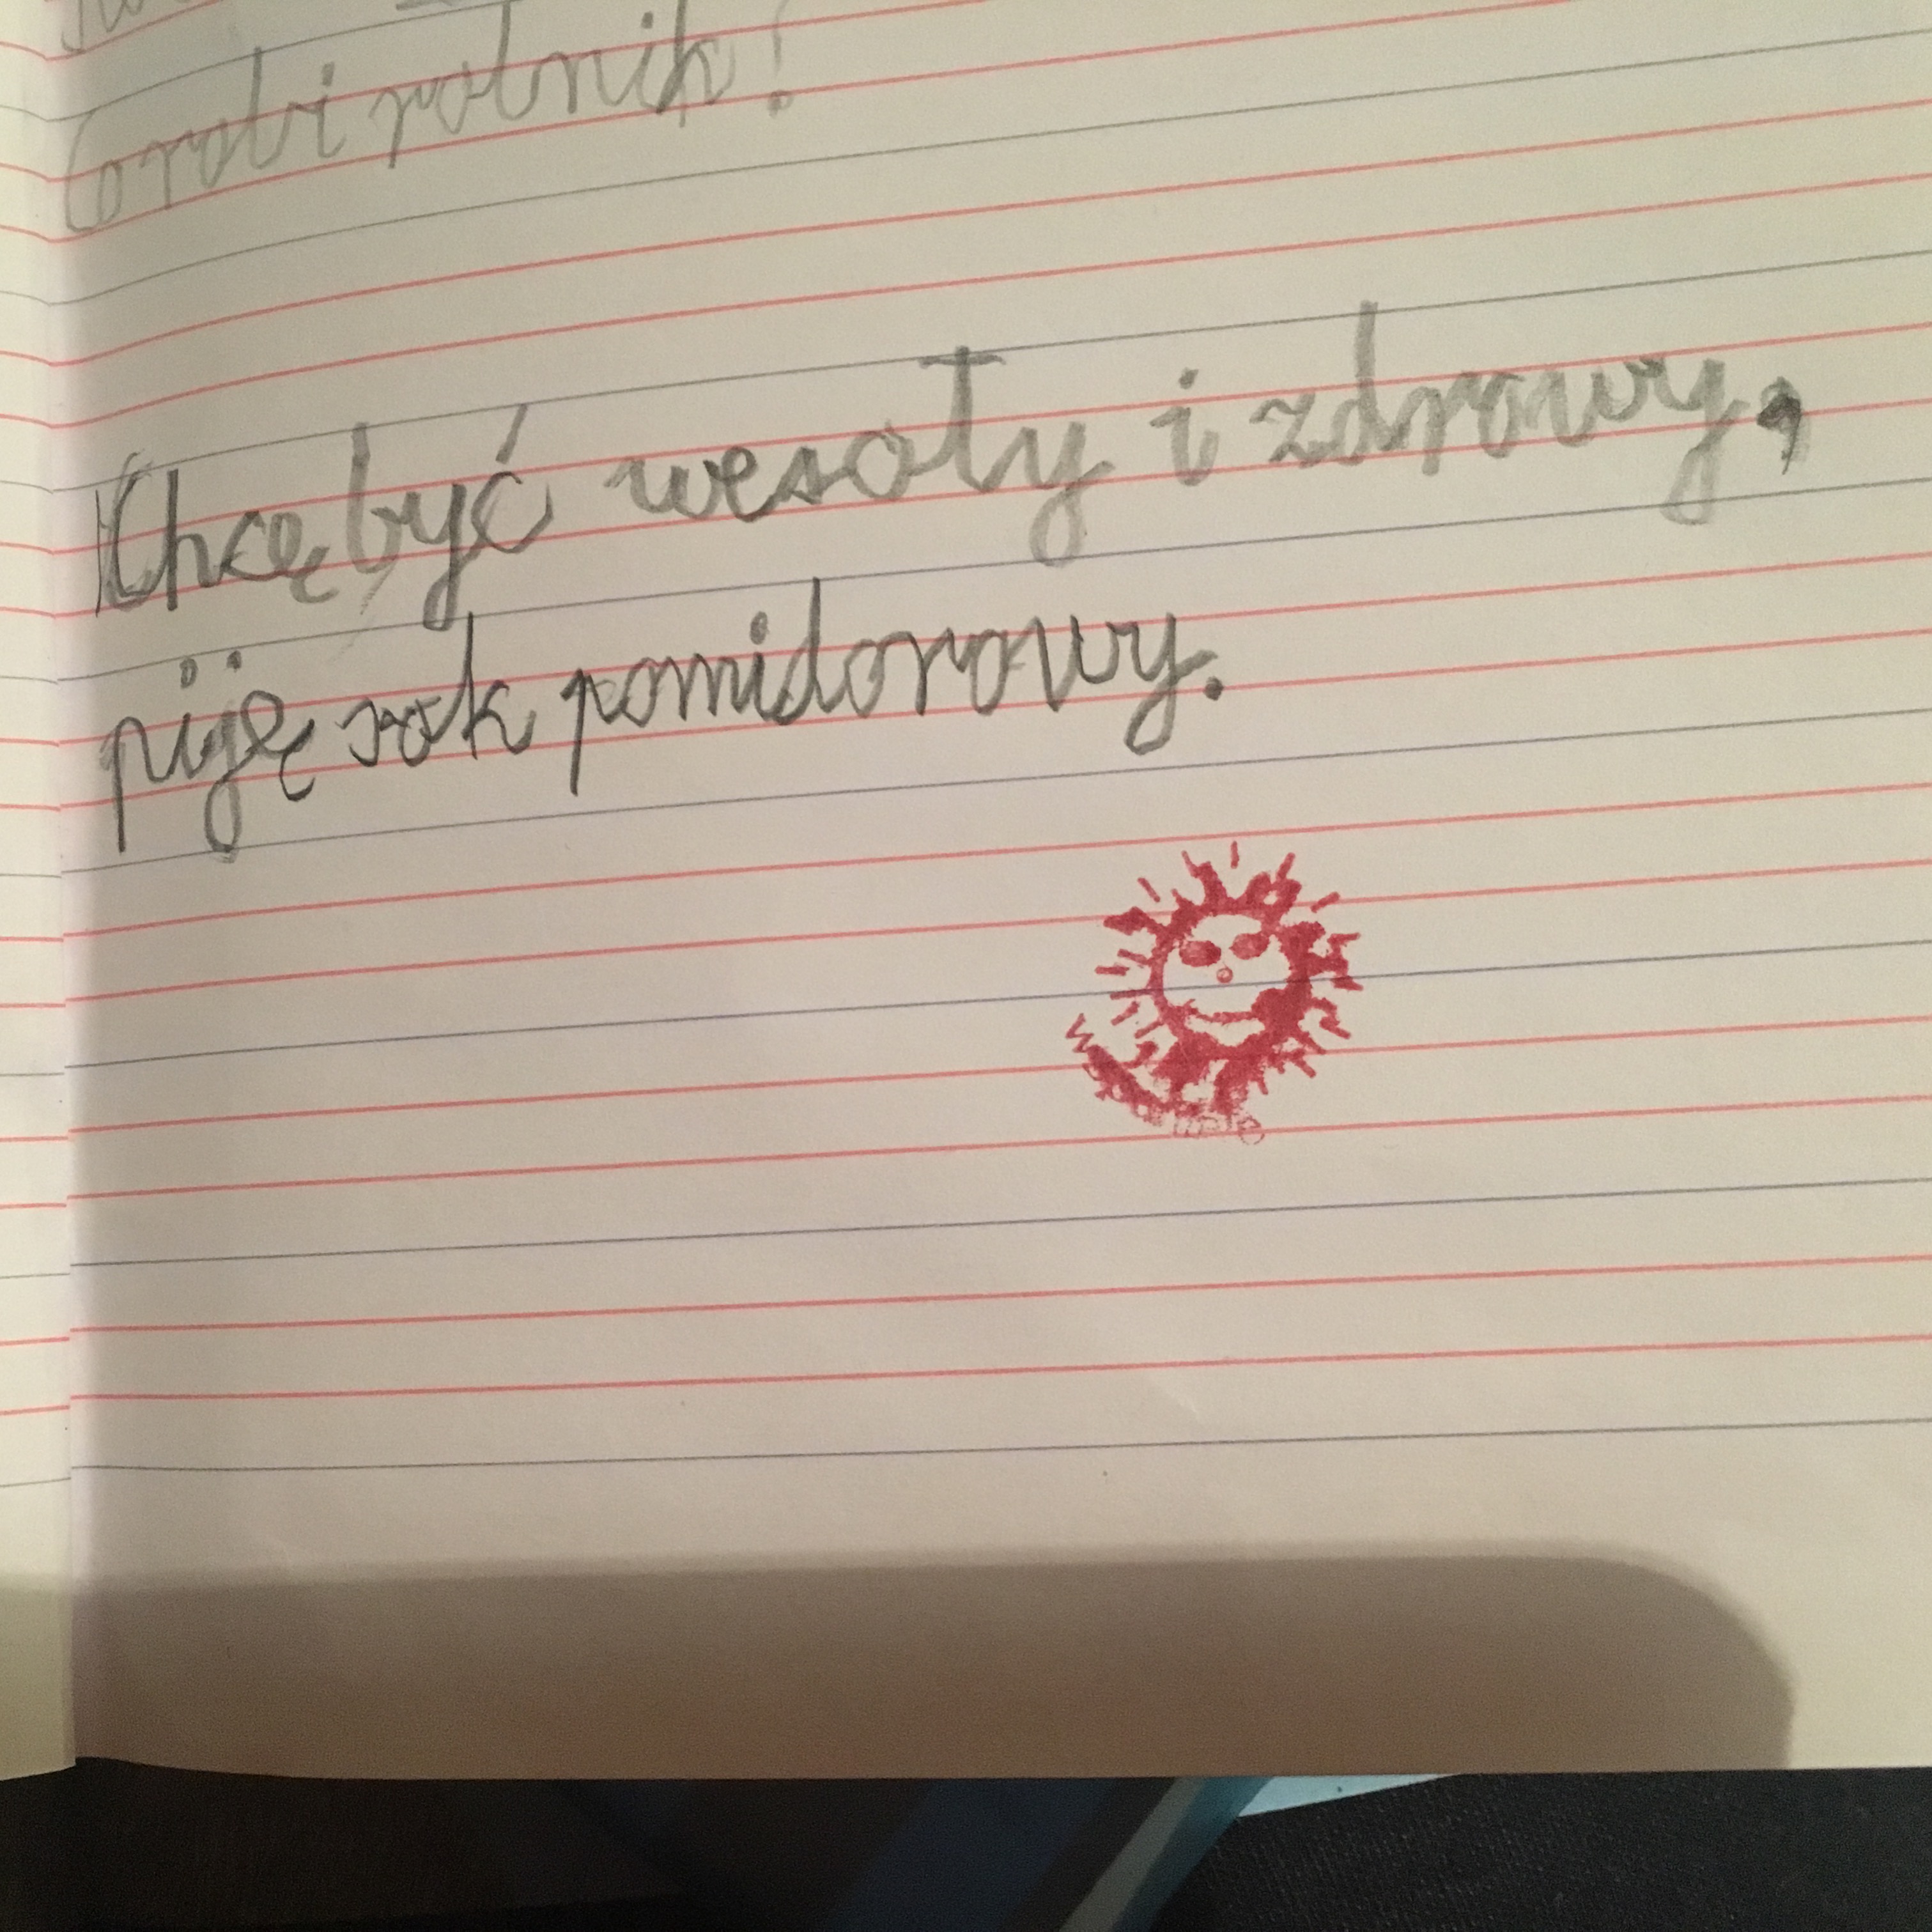 Co robi rolnik?
Chcę być wesoły i zdrowy,
piję sok pomidorowy.